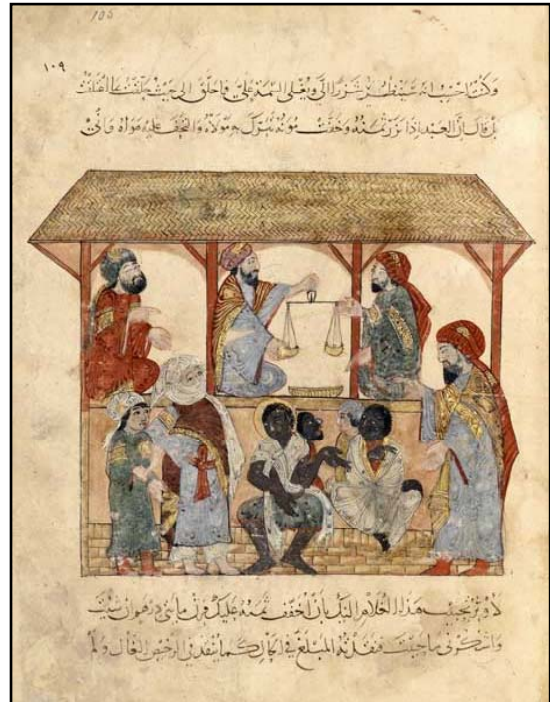 105
١٠٩
وكنت احسب انه سينظر شزرا الي ويغلي السيمة علي فما حلق الى حيث حلقت
بل قال ان العبد اذا نزر ثمنه وخفت مونه تبرك به مولاه والتحف عليه هواه واني
لاوثر تحبيب هذا الغلام اليك بان اخفف ثمنه عليك فزن مائتي درهم ان شئت
واشكر لي ما حييت فنقدته المبلغ في الحال كما ينقد في الرخيص الغال ولم